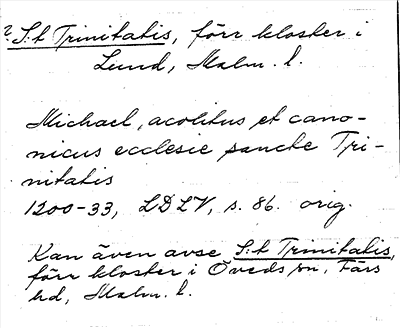 ? S:t Trinitatis, förr kloster i
Lund, Malm. l.
Michael, acolitus et cano-
nicus ecclesie sancte Tri-
nitatis
1200-33, LDLV, s. 86. orig.
Kan även avse S:t Trinitatis,
förr kloster i Öveds sn, Färs
hd, Malm. l.